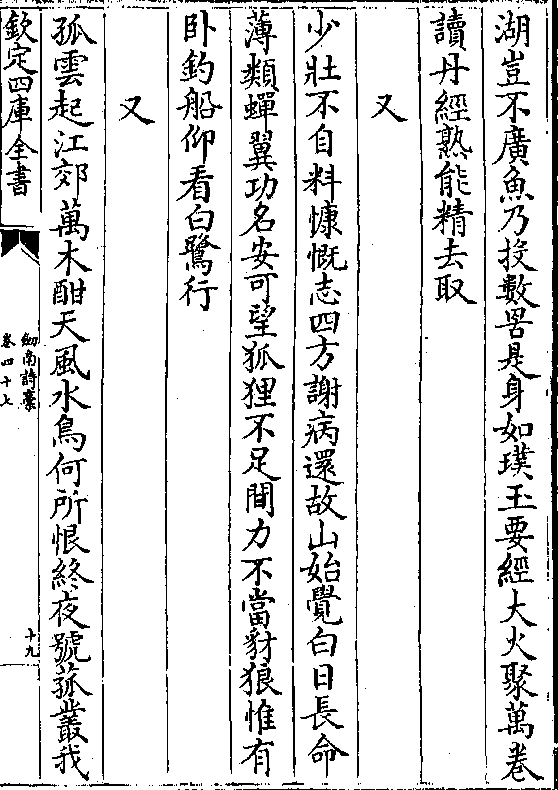 湖豈不廣魚乃投數罟是身如璞玉要經大火聚萬卷
讀丹經熟能精去取
又
少壯不自料慷慨志四方謝病還故山始覺白日長命
薄類蟬翼功名安可望狐狸不足間力不當豺狼惟有
卧釣船仰看白鷺行
又
孤雲起江郊萬木酣天風水鳥何所恨終夜號菰叢我
欽定四庫全書
劍南詩槀
卷四十七
十九